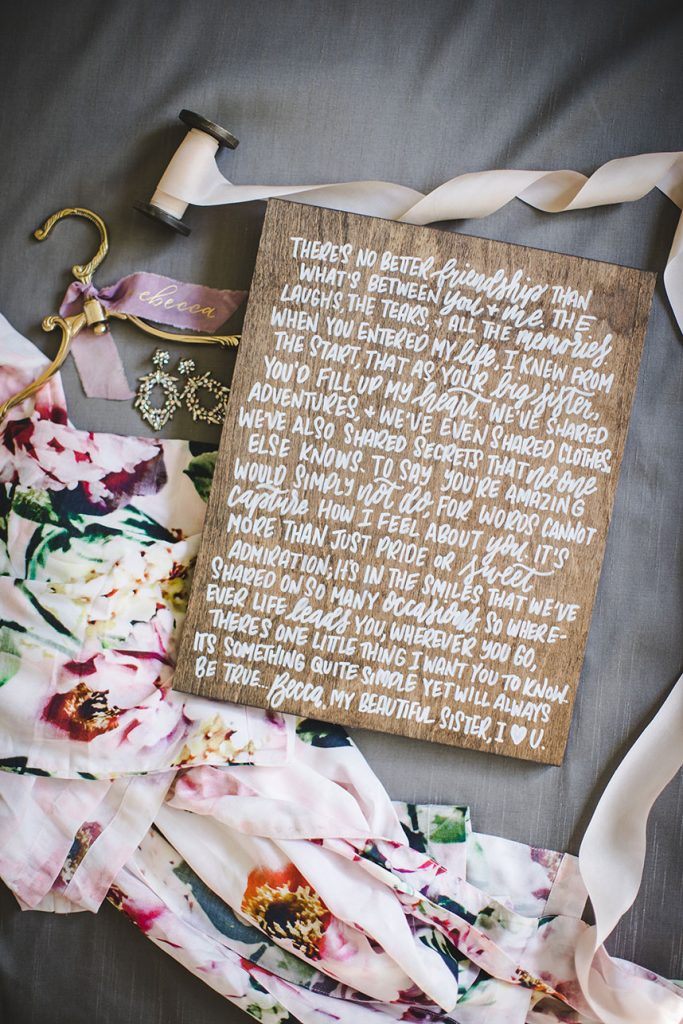 ebecca
THERE'S NO BETTER friendship THAN
WHAT'S BETWEEN you + me. THE
LAUGHS, THE TEARS, + ALL THE memories
WHEN YOU ENTERED MY life, I KNEW FROM
THE START, THAT AS YOUR big sister,
YOU'D FILL UP MY heart. WE'VE SHARED
ADVENTURES, + WE'VE EVEN SHARED CLOTHES.
WE'VE ALSO SHARED SECRETS THAT no one
ELSE KNOWS. TO SAY YOU'RE AMAZING
WOULD SIMPLY not do, FOR WORDS CANNOT
capture HOW I FEEL ABOUT you. IT'S
MORE THAN JUST PRIDE OR sweet
ADMIRATION. IT'S IN THE SMILES THAT WE'VE
SHARED ON SO MANY occasions. SO WHERE-
EVER LIFE leads YOU, WHEREVER YOU GO,
THERE'S ONE LITTLE THING I WANT YOU TO KNOW.
IT'S SOMETHING QUITE SIMPLE YET WILL ALWAYS
BE TRUE... Becca, MY BEAUTIFUL SISTER, I ♥ U.